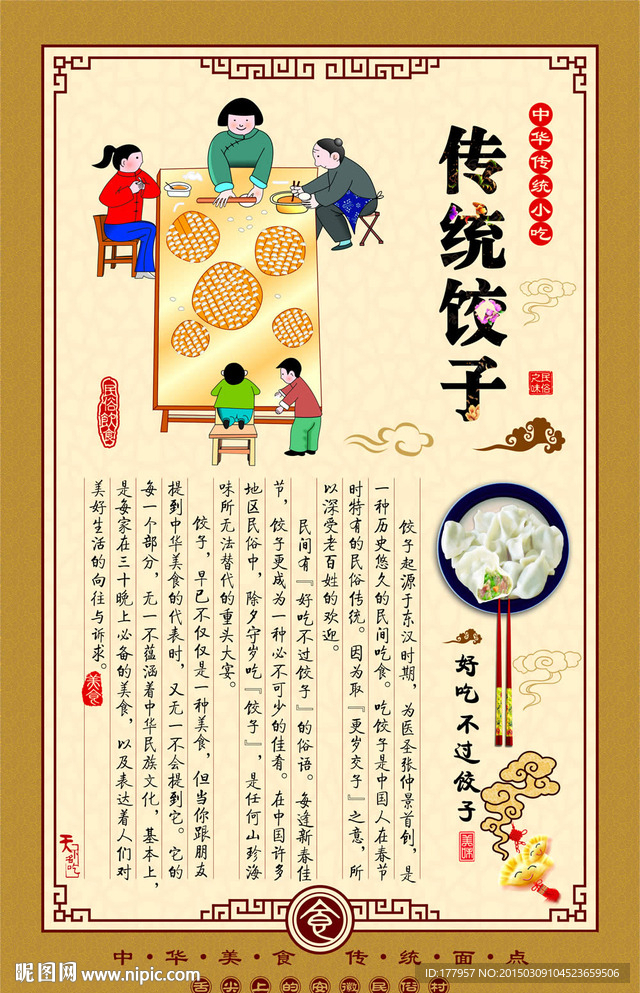 中华传统小吃
传统饺子
民俗之味
民俗飲食
饺子起源于东汉时期，为医圣张仲景首创，是
一种历史悠久的民间吃食。吃饺子是中国人在春节
时特有的民俗传统。因为取『更岁交子』之意，所
以深受老百姓的欢迎。
民间有『好吃不过饺子』的俗语。每逢新春佳
节，饺子更成为一种必不可少的佳肴。在中国许多
地区民俗中，除夕守岁吃『饺子』，是任何山珍海
味所无法替代的重头大宴。
饺子，早已不仅仅是一种美食，但当你跟朋友
提到中华美食的代表时，又无一不会提到它。它的
每一个部分，无一不蕴涵着中华民族文化，基本上，
是每家在三十晚上必备的美食，以及表达着人们对
美好生活的向往与诉求。
美食
好吃不过饺子
美味
食
中·华·美·食 传·统·面·点
舌尖上的安徽民俗村
昵图网 www.nipic.com
ID:177957 NO:20150309104523659506